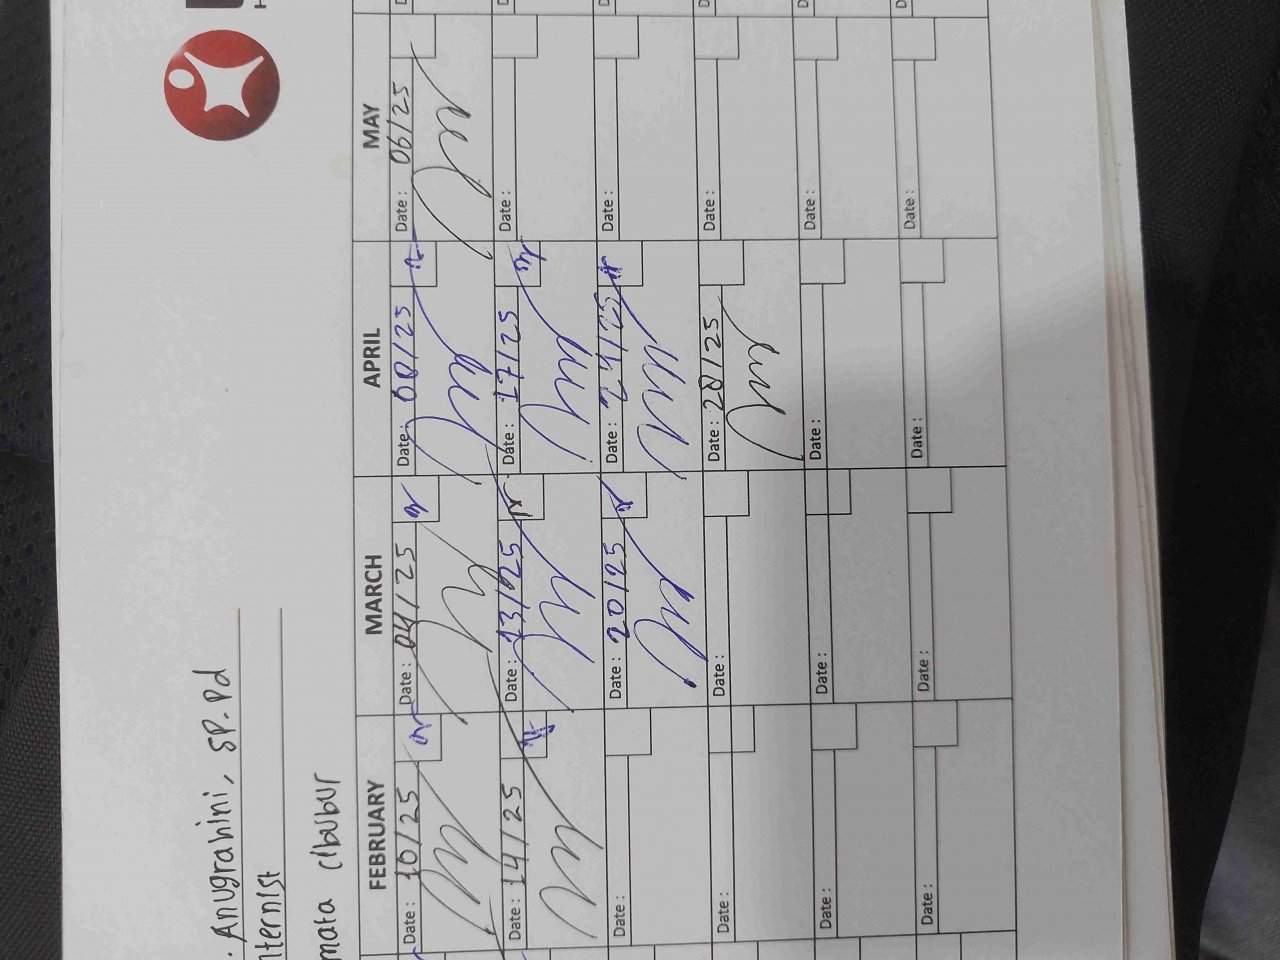 . Anugrahini, SP.Pd
nternist
mata cibubur
FEBRUARY MARCH APRIL MAY
Date : 10/25 Date : 04/25 Date : 08/25 Date : 06/25
Date : 14/25 Date : 13/25 Date : 17/25 Date :
Date : Date : 20/25 Date : 24/25 Date :
Date : Date : Date : 28/25 Date :
Date : Date : Date : Date :
Date : Date : Date : Date :